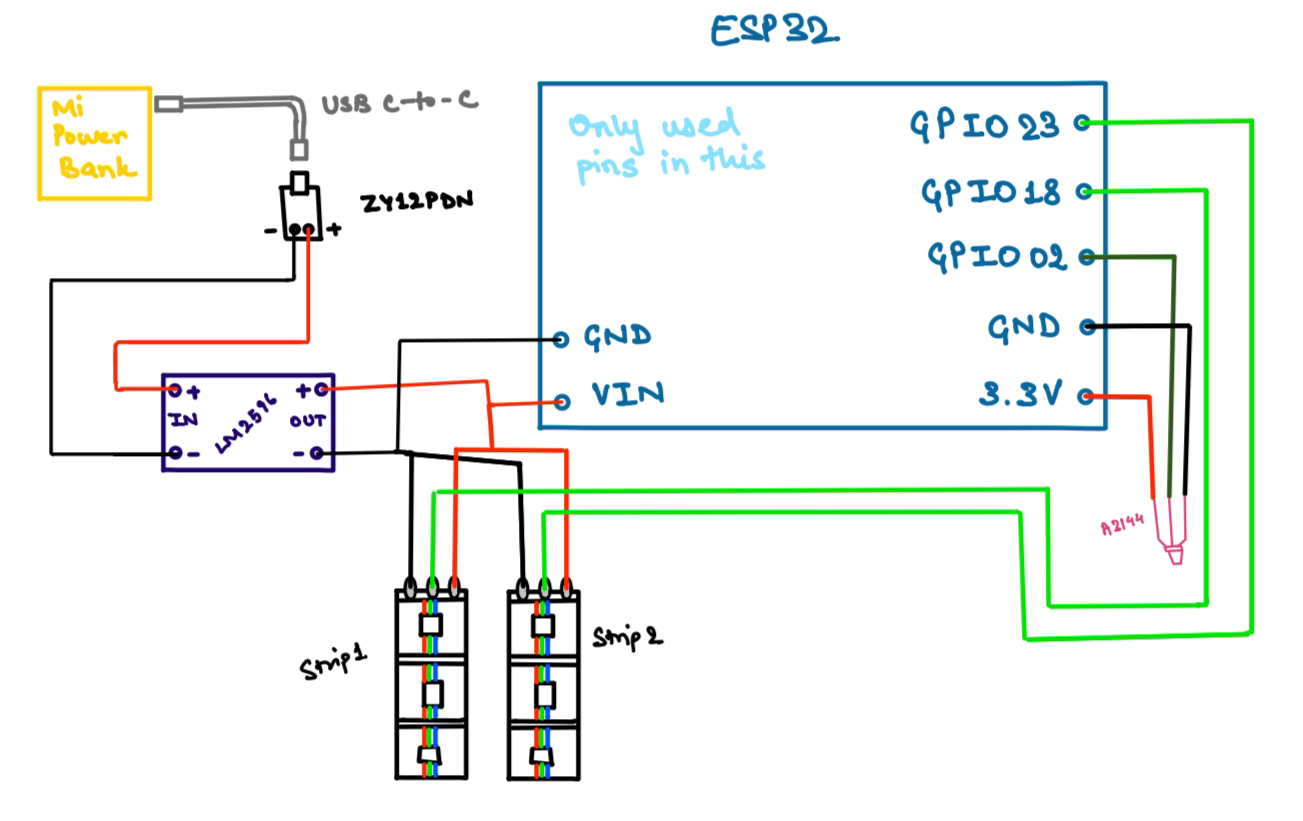 ESP32
Mi
Power
Bank
USB C-to-C
ZY12PDN
- +
Only used
pins in this
GPIO 23
GPIO 18
GPIO 02
GND
3.3V
GND
VIN
+ +
IN LM2596 OUT
- -
A2144
Strip1
Strip2